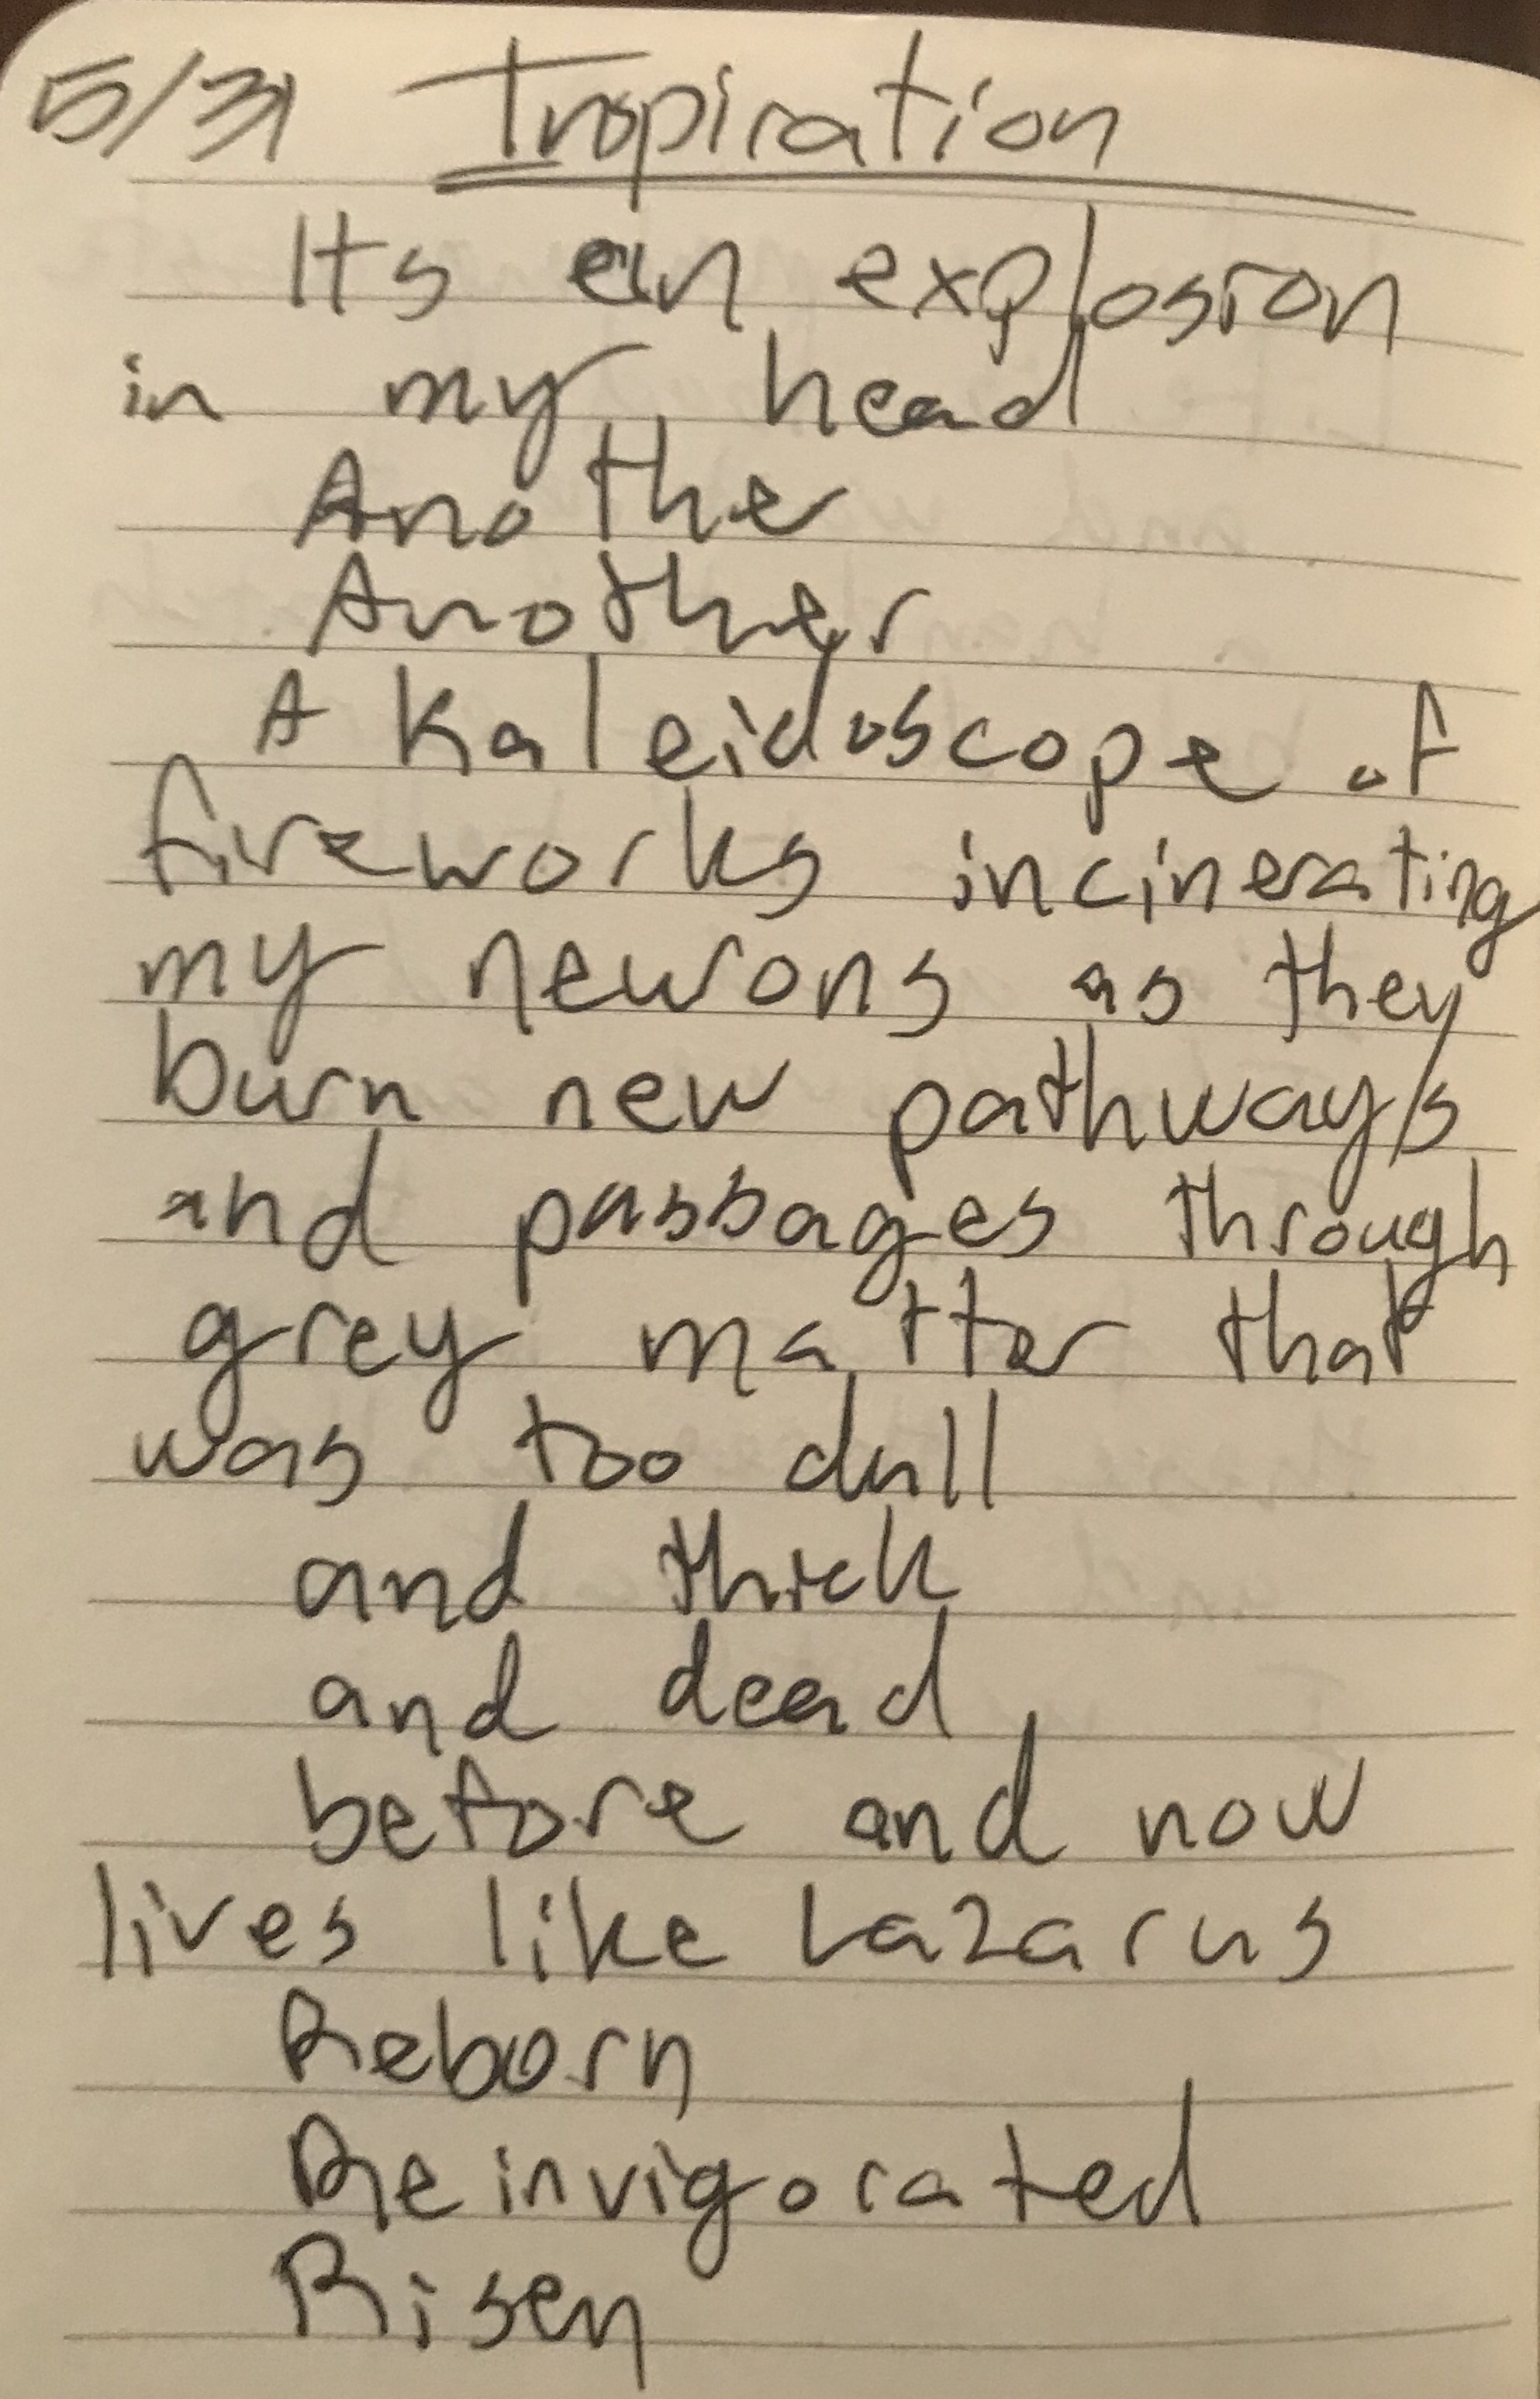 5/31 Inspiration
Its an explosion
in my head
Another
Another
A Kaleidoscope of
fireworks incinerating
my neurons as they
burn new pathways
and passages through
grey matter that
was too dull
and thick
and dead
before and now
lives like Lazarus
Reborn
Reinvigorated
Risen